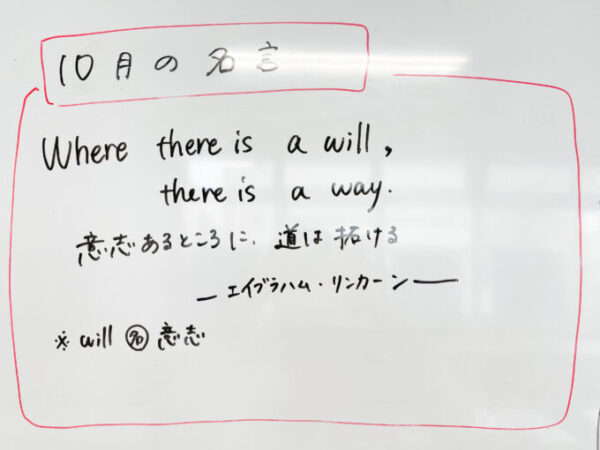 10月の名言
Where there is a will,
there is a way.
意志あるところに、道は拓ける
― エイブラハム・リンカーン ―
※ will 名 意志